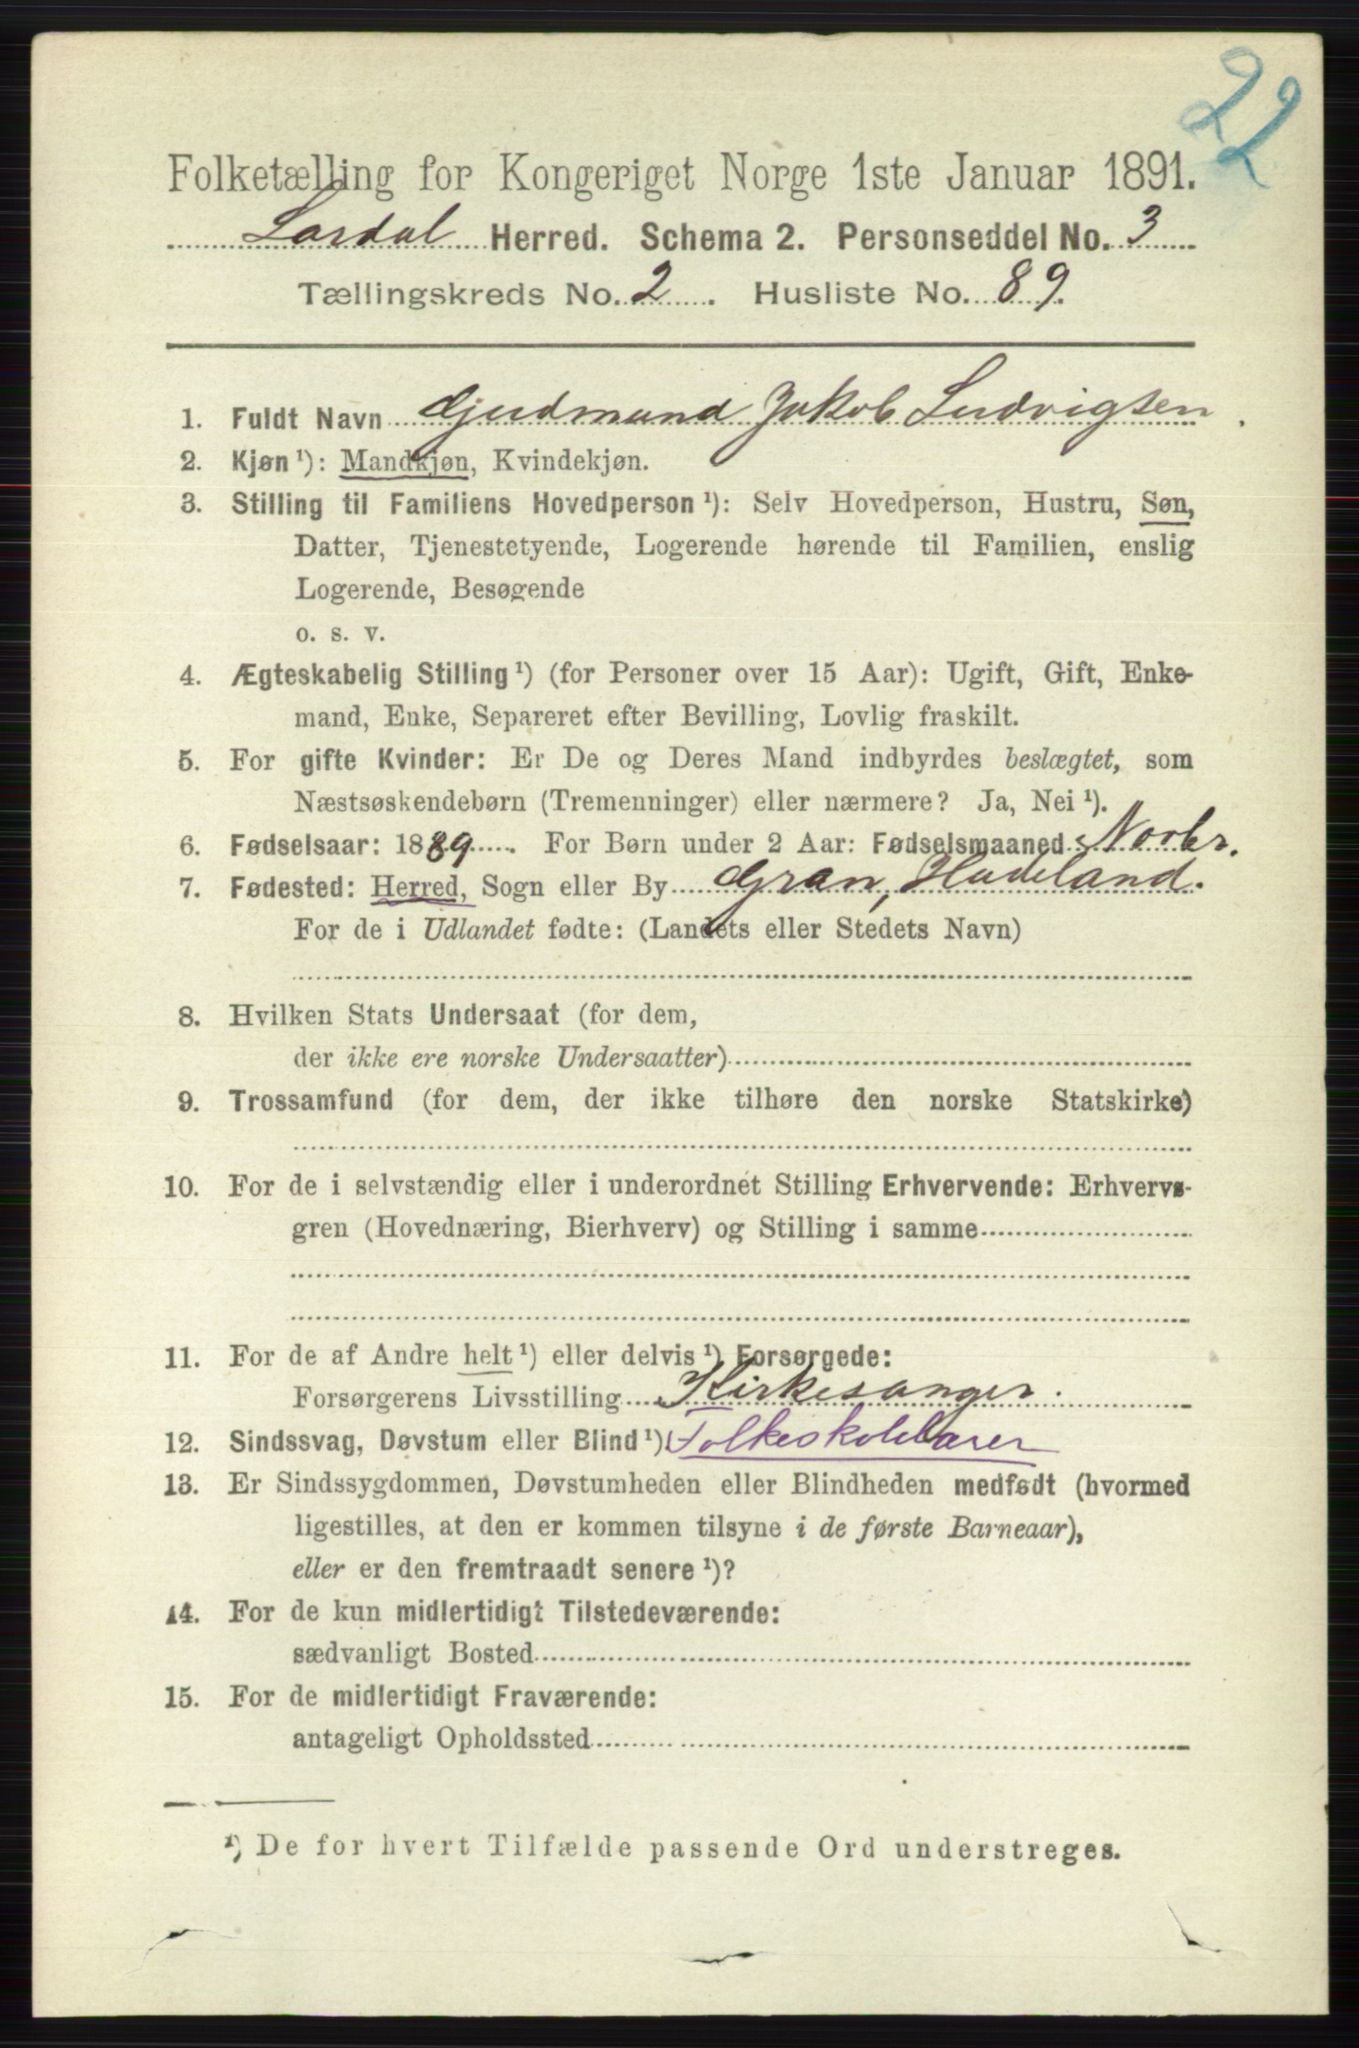 22
Folketælling for Kongeriget Norge 1ste Januar 1891.
Lardal Herred. Schema 2. Personseddel No. 3
Tællingskreds No. 2. Husliste No. 89.
1. Fuldt Navn Gjudmund Jakob Ludvigsen.
2. Kjøn ¹): Mandkjøn, Kvindekjøn.
3. Stilling til Familiens Hovedperson ¹): Selv Hovedperson, Hustru, Søn,
Datter, Tjenestetyende, Logerende hørende til Familien, enslig
Logerende, Besøgende
o. s. v.
4. Ægteskabelig Stilling ¹) (for Personer over 15 Aar): Ugift, Gift, Enke-
mand, Enke, Separeret efter Bevilling, Lovlig fraskilt.
5. For gifte Kvinder: Er De og Deres Mand indbyrdes beslægtet, som
Næstsøskendebørn (Tremenninger) eller nærmere? Ja, Nei ¹).
6. Fødselsaar: 1889. For Børn under 2 Aar: Fødselsmaaned Novbr.
7. Fødested: Herred, Sogn eller By Gran, Hadeland.
For de i Udlandet fødte: (Landets eller Stedets Navn)
8. Hvilken Stats Undersaat (for dem,
der ikke ere norske Undersaatter)
9. Trossamfund (for dem, der ikke tilhøre den norske Statskirke)
10. For de i selvstændig eller i underordnet Stilling Erhvervende: Erhvervs-
gren (Hovednæring, Bierhverv) og Stilling i samme
11. For de af Andre helt ¹) eller delvis ¹) Forsørgede:
Forsørgerens Livsstilling Kirkesanger.
12. Sindssvag, Døvstum eller Blind ¹). Folkeskolelærer
13. Er Sindssygdommen, Døvstumheden eller Blindheden medfødt (hvormed
ligestilles, at den er kommen tilsyne i de første Barneaar),
eller er den fremtraadt senere ¹)?
14. For de kun midlertidigt Tilstedeværende:
sædvanligt Bosted
15. For de midlertidigt Fraværende:
antageligt Opholdssted
¹) De for hvert Tilfælde passende Ord understreges.